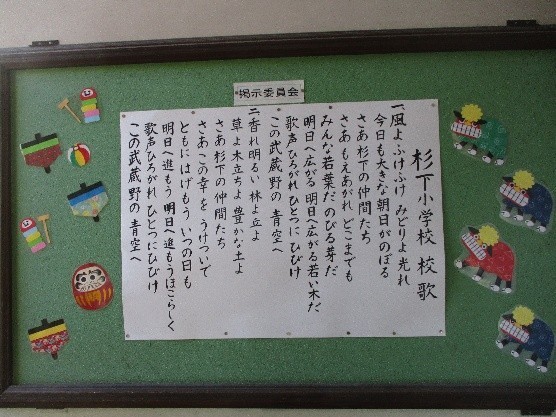 掲示委員会
杉下小学校 校歌
一、風よふけふけ みどりよ光れ
今日も大きな朝日がのぼる
さあ杉下の仲間たち
さあもえあがれ どこまでも
みんな若葉だ のびる芽だ
明日へ広がる 明日へ広がる若い木だ
歌声ひろがれ ひとつにひびけ
この武蔵野の青空へ
二、香れ明るい林よ立よ
草よ木立ちよ 豊かな土よ
さあ杉下の仲間たち
さあこの幸を うけついで
ともにはげもう いつの日も
明日へ進もう 明日へ進もうほこらしく
歌声ひろがれ ひとつにひびけ
この武蔵野の青空へ